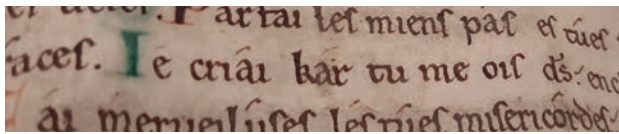 Partai les miens pas es tues
aces. Je criai kar tu me ois ds. enc
ai merueiluses les tues misericordes